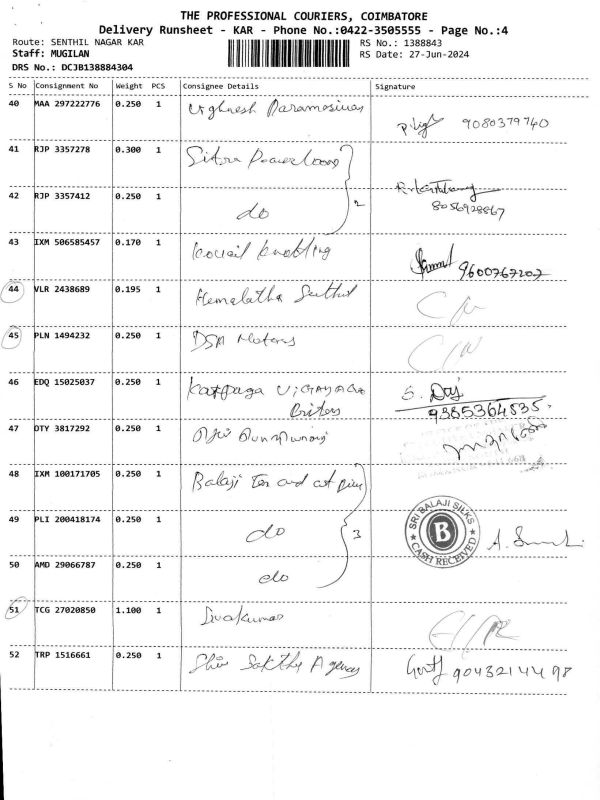 THE PROFESSIONAL COURIERS, COIMBATORE
Delivery Runsheet - KAR - Phone No.:0422-3505555 - Page No.:4
Route: SENTHIL NAGAR KAR
RS No.: 1388843
Staff: MUGILAN
RS Date: 27-Jun-2024
DRS No.: DCJB138884304
S No Consignment No Weight PCS Consignee Details Signature
40 MAA 297222776 0.250 1
9080379740
41 RJP 3357278 0.300 1 Sitra Powerlooms
42 RJP 3357412 0.250 1 do 2
8056928867
43 IXM 506585457 0.170 1 knotting
9600767207
44 VLR 2438689 0.195 1 Hemalatha Senthil
45 PLN 1494232 0.250 1 DSM Motors
46 EDQ 15025037 0.250 1 Karpaga Vigayaga S. Daj
9385364835.
47 OTY 3817292 0.250 1
48 IXM 100171705 0.250 1 Balaji Tex and
49 PLI 200418174 0.250 1 do 3
SRI BALAJI SILKS
B
CASH RECEIVED
50 AMD 29066787 0.250 1 do
51 TCG 27020850 1.100 1 Sivakumar
52 TRP 1516661 0.250 1 Shiv Sakthi Agency 9043214498